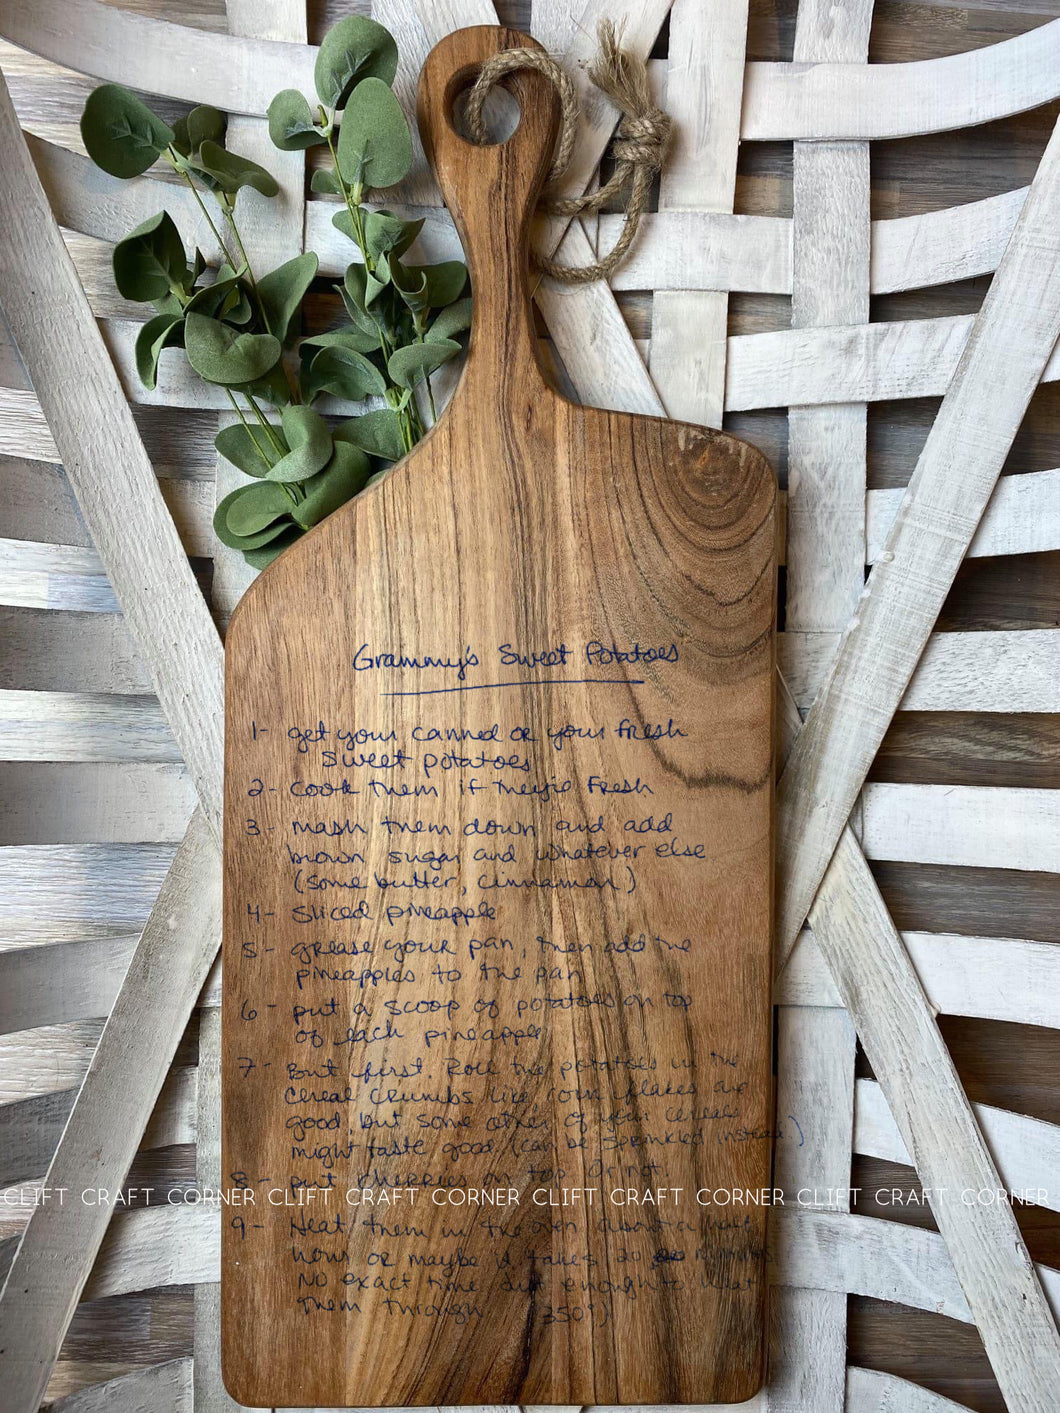 Grammy's Sweet Potatoes
1- get your canned or your fresh
Sweet potatoes
2- Cook them if they're Fresh
3- mash them down and add
brown sugar and whatever else
(some butter, cinnamon)
4- Sliced pineapple
5- grease your pan, then add the
pineapples to the pan
6- put a scoop of potatoes on top
of each pineapple
7- But first. Roll the potatoes in the
cereal crumbs like corn flakes are
good, but some other of your cereals
might taste good (can be sprinkled instead.)
8- put cherries on top or not.
CLIFT CRAFT CORNER CLIFT CRAFT CORNER CLIFT CRAFT CORNER CLIFT CRAFT CORNER
9- Heat them in the oven about a half
hour or maybe it takes 20 minutes.
NO exact time, just enough to heat
them through (350°)